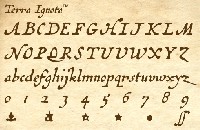 Terra Ignota™
ABCDEFGHIJKLM
NOPQRSTUVWXYZ
abcdefghijklmnopqrstuvwxyz
0 1 2 3 4 5 6 7 8 9